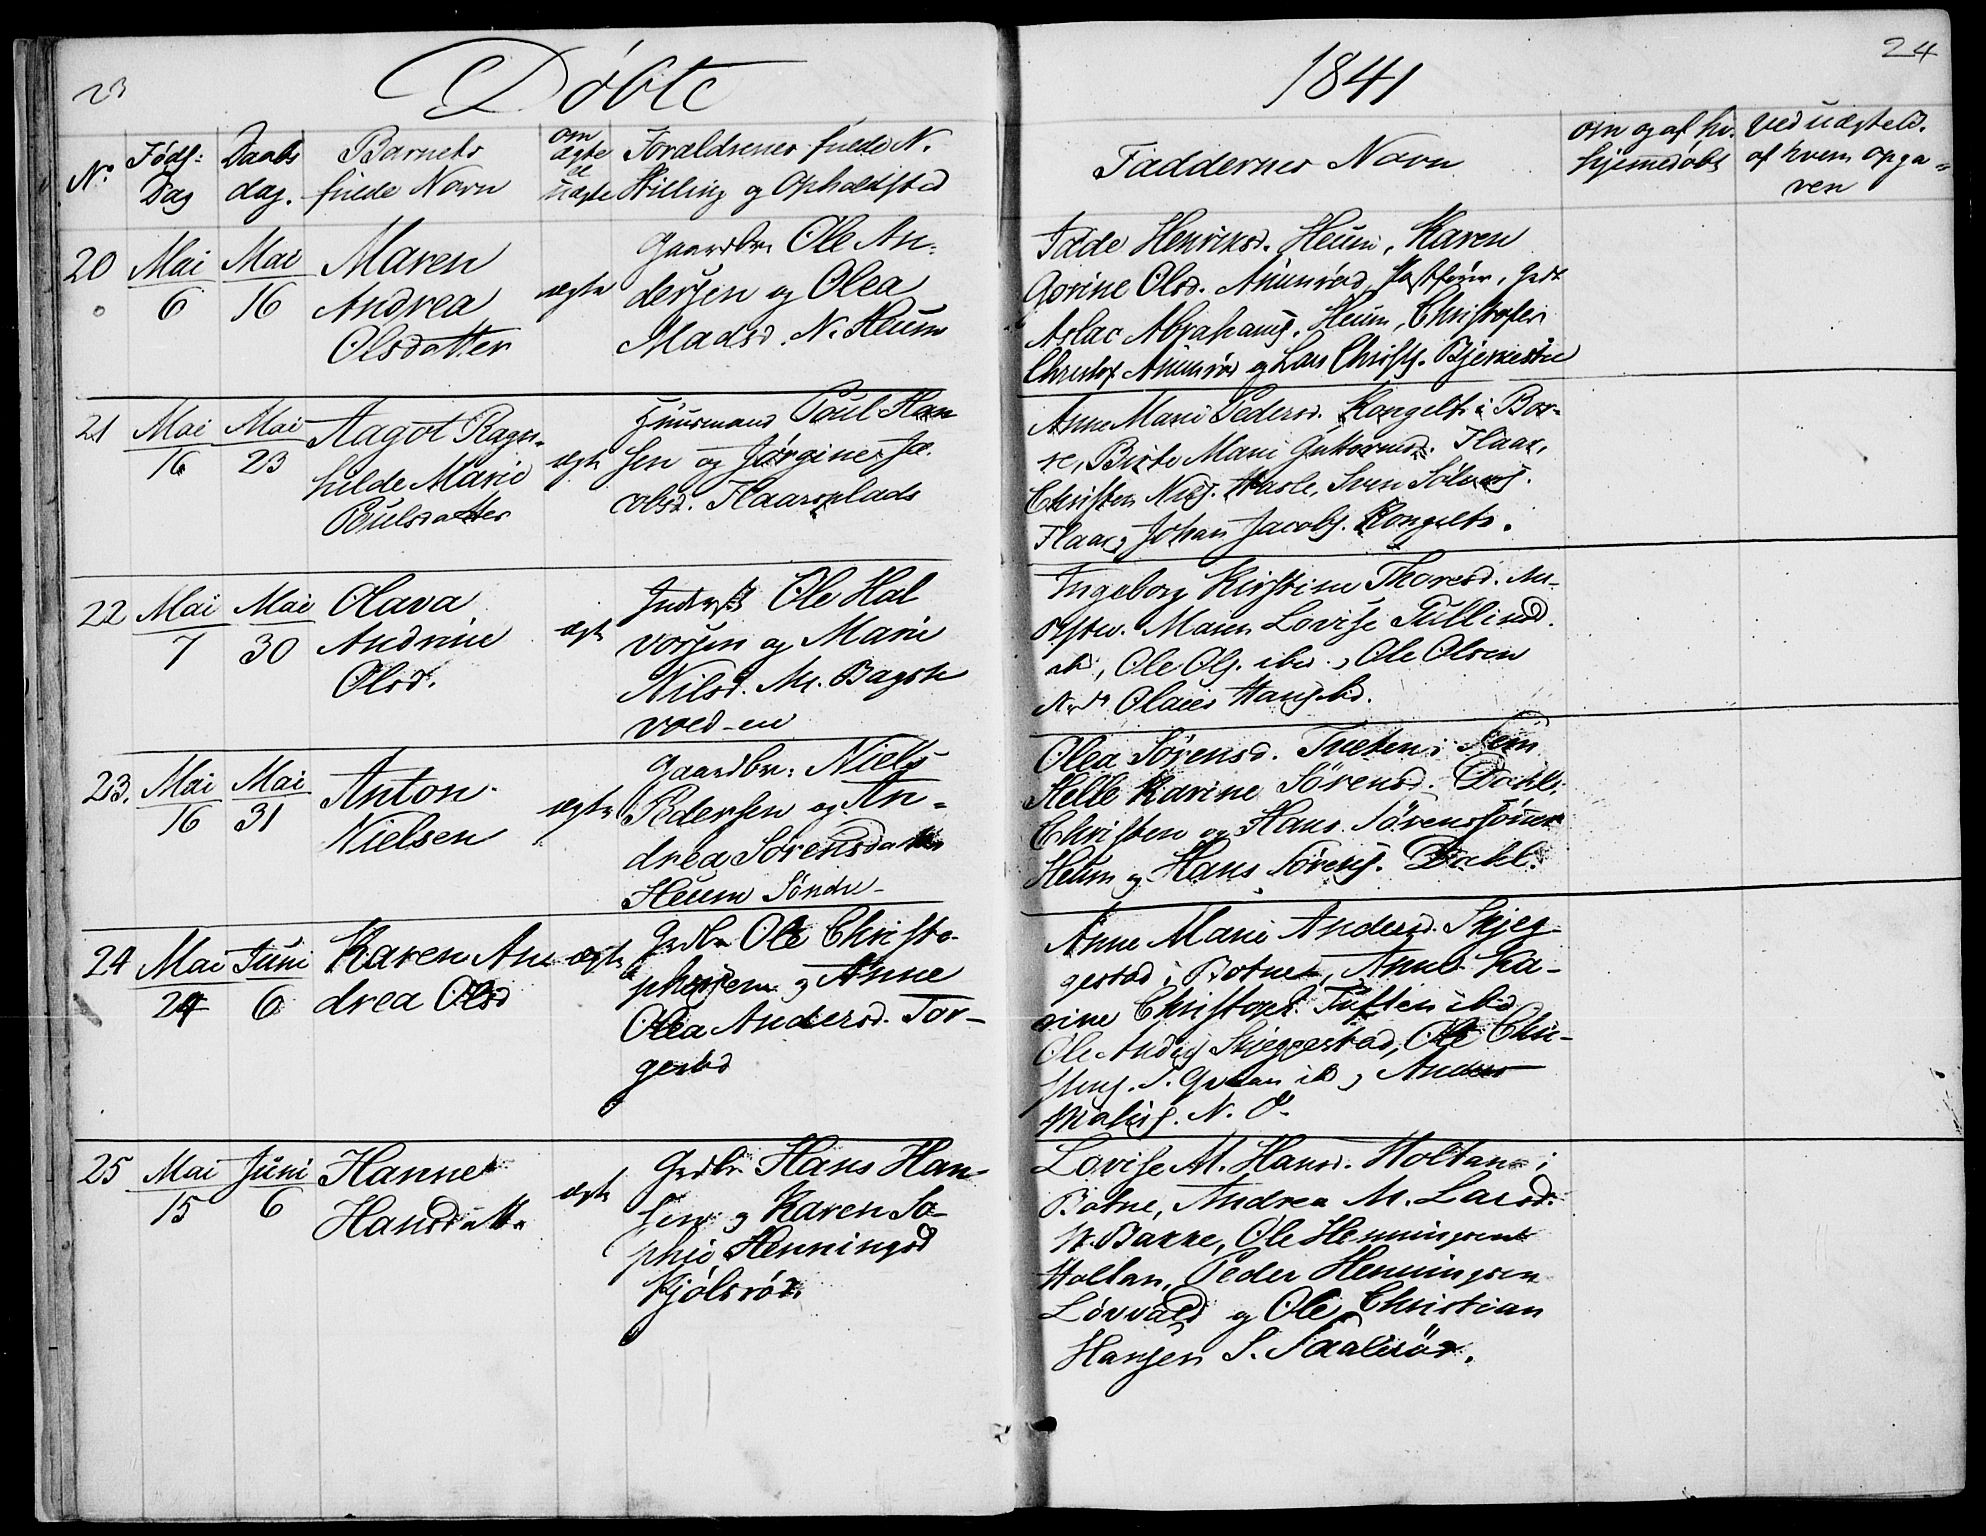 23
Döbte
1841
24
No
Föds: Dag
Daabs dag.
Barnets fulde Navn
om ægte el uægte
Foraldrenes fulde N. Stilling og Opholdsted
Faddernes Navn
om og af hv. hjemedøbt
Ved uægtefd. af hvem opga= ven
20
Mai 6
Mai 16
Maren
Andrea
Olsdatter
ægte
Gaardbr. Ole An-
dersen og Olea
Madsd. N. Heum
Henriksd. Heum, Karen
Gorine Olsd.
Aslac Abrahams. Heum, Christofer
og Lars Christs.
21
Mai 16
Mai 23
Aagot Ragn-
hilde Marie
Poulsdatter
ægte
Huusmand Poul Han
sen og Jørgine Ja-
cobsd. Flaarsplads
Anne Marie Pedersd. Kongelts i Bor-
re, Birte Marie Guttormsd. Flaar,
Christen Nils. Sven
Flaar, Johan Jacobs. Kongelts.
22
Mai 7
Mai 30
Olava
Andrine
Olsd.
ægte
Inderst Ole Hal
vorsen og Marie
Nilsd. M. Bagste
voldien
Ingeborg Kirstine Thoresd.
Maren Lovise Tullinsd.
ibd, Ole Ols. ibd., Ole Olsen
Hans ibd.
23.
Mai 16
Mai 31
Anton
Nielsen
ægte
Gaardbr. Niels
Pedersen og An-
drea Sørensdatter
Heum Søndre
Olea Sørensd. Tveten i Sem
Helle Karine Sørensd. Dahl,
Christen og Hans Sørenssønner
Heum og Hans Sørens. Dahl.
24
Mai 24
Juni 6
Karen An
drea Olsd
ægte
Grdbr Ole Christo-
phersen og Anne
Olea Andersd. Tor-
gestad
Anne Marie Andersd. Skjeg-
gestad i Botne, Anne Ka-
rine Christophd. Tuften ibid
Ole Anders Skjeggestad, Ole Chri-
ibd, Anders
25
Mai 15
Juni 6
Hanne
Hansdatter
ægte
Grdbr Hans Han-
sen og Karen So-
phie Henningsd
Kjølsrød.
Lovise M. Hansd. Holtan i
Botne, Andrea M. Larsd.
N. Bakke, Ole Henningsen
Holtan, Peder Henningsen
Løvvald og Ole Christian
Hansen S.